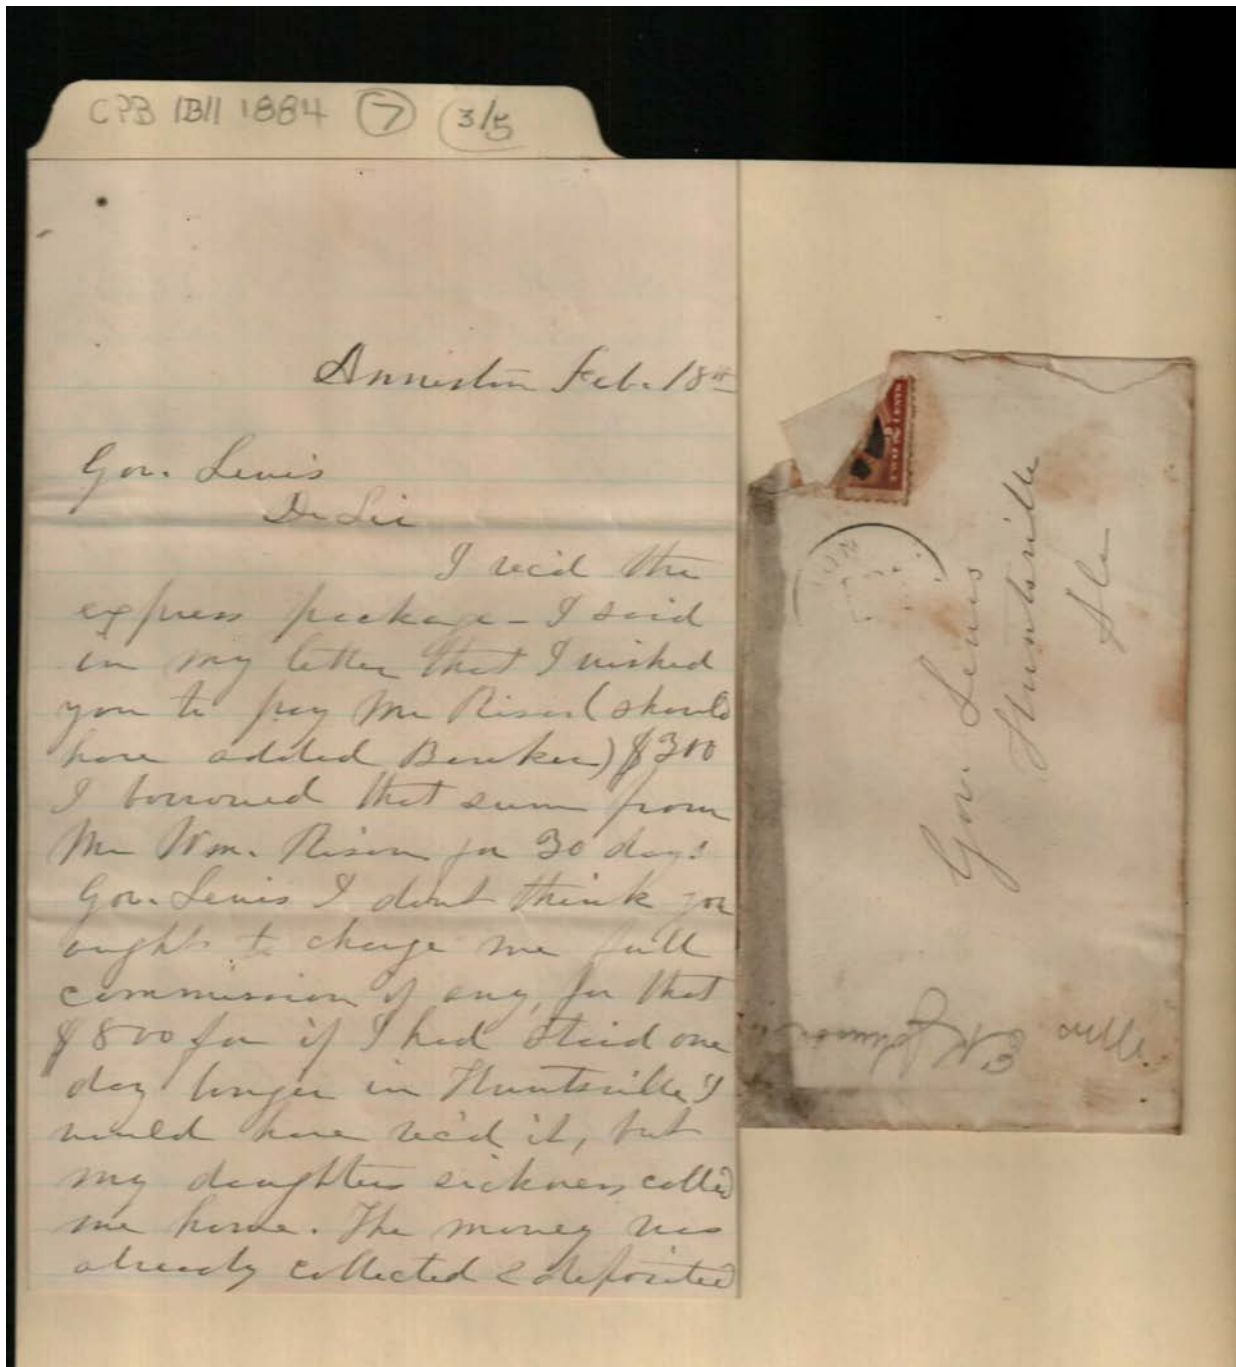 CPB IBII 1884 7 3/5
Anniston Feb. 18th
Gov. Lewis
Dr Sir
I rec'd the
express package - I said
in my letter that I wished
you to pay Mr Rison (should
have added Banker) $300
I borrowed that sum from
Mr Wm. Rison for 30 days
Gov. Lewis I dont think you
ought to charge me full
commission if any, for that
$800 for if I had staid one
day longer in Huntsville I
would have rec'd it, but
my daughters sickness called
me home. The money was
already collected & deposited
TWO CENTS
Gov. Lewis
Huntsville
Ala
Mrs
E K Johnson